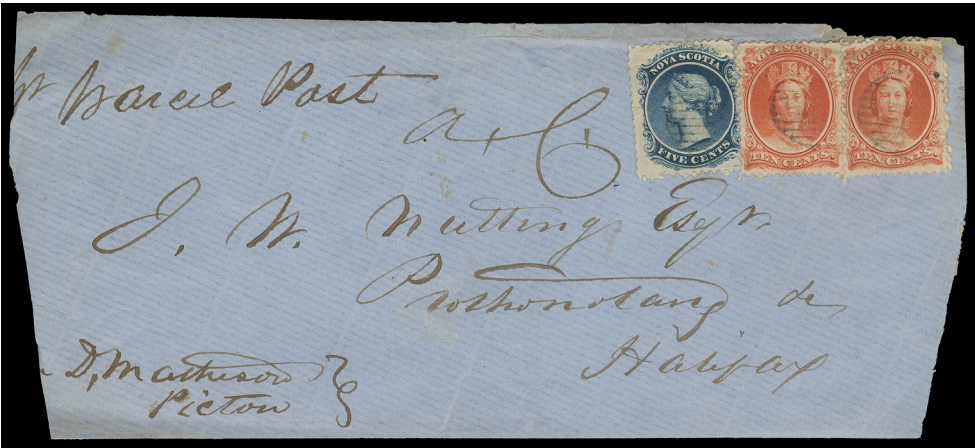 pr Parcel Post
NOVA SCOTIA
FIVE CENTS
NOVA SCOTIA
TEN CENTS
NOVA SCOTIA
TEN CENTS
J. W. Nutting Esqr.
Prothonotary &c
Halifax
D, Matheson
Pictou